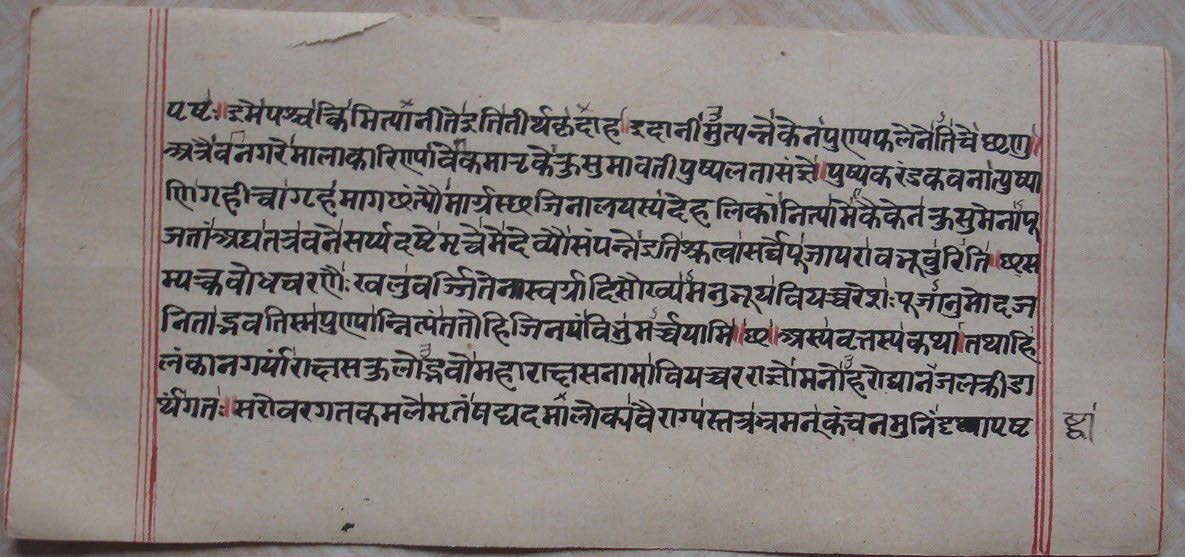 पप्रछ ॥ इमे पश्चात्किमित्यानीते इति तीर्थकृदाह ॥ इदानीमुत्पन्ने केन पुण्यफलेनेति चेछृणु ॥
अत्रैव नगरे मालाकारिण्यावेकमातृके कुसुमावती पुष्पलता संज्ञे ॥ पुष्पकरंडकवनात्पुष्पा
णि गृहीत्वा गृहमागछंत्यौ मार्गस्छजिनालयस्य देहलिकां नित्यमेकैकेन कुसुमेन पू
जतां अद्य तत्र वने सर्प्पदष्टे मृत्वेमे देव्यौ संपन्ने इति श्रुत्वा सर्वे पूजापरा बभूवुरिति ॥ छ ॥ स
म्यक्त्वबोधचरणैः खलु वर्ज्जितो ना स्वर्गादिसौख्यमनुभूय वियच्चरेशः पूजानुमोदज
निताद्भवतिस्म पुण्यान्नित्यं ततो हि जिनपं विभुमर्च्चयामि ॥ छ ॥ अस्य वृत्तस्य कथा ॥ तथाहि
लंकानगर्यां राक्षसकुलोद्भवो महाराक्षसनामा वियच्चरराजो मनोहरोद्यानं जलक्रीडा
र्थं गतः ॥ सरोवरगतकमले मृतं षट्पदमालोक्य वैराग्यस्तत्र भ्रमन् कंचन मुनिं दृष्ट्वा पप्रछ